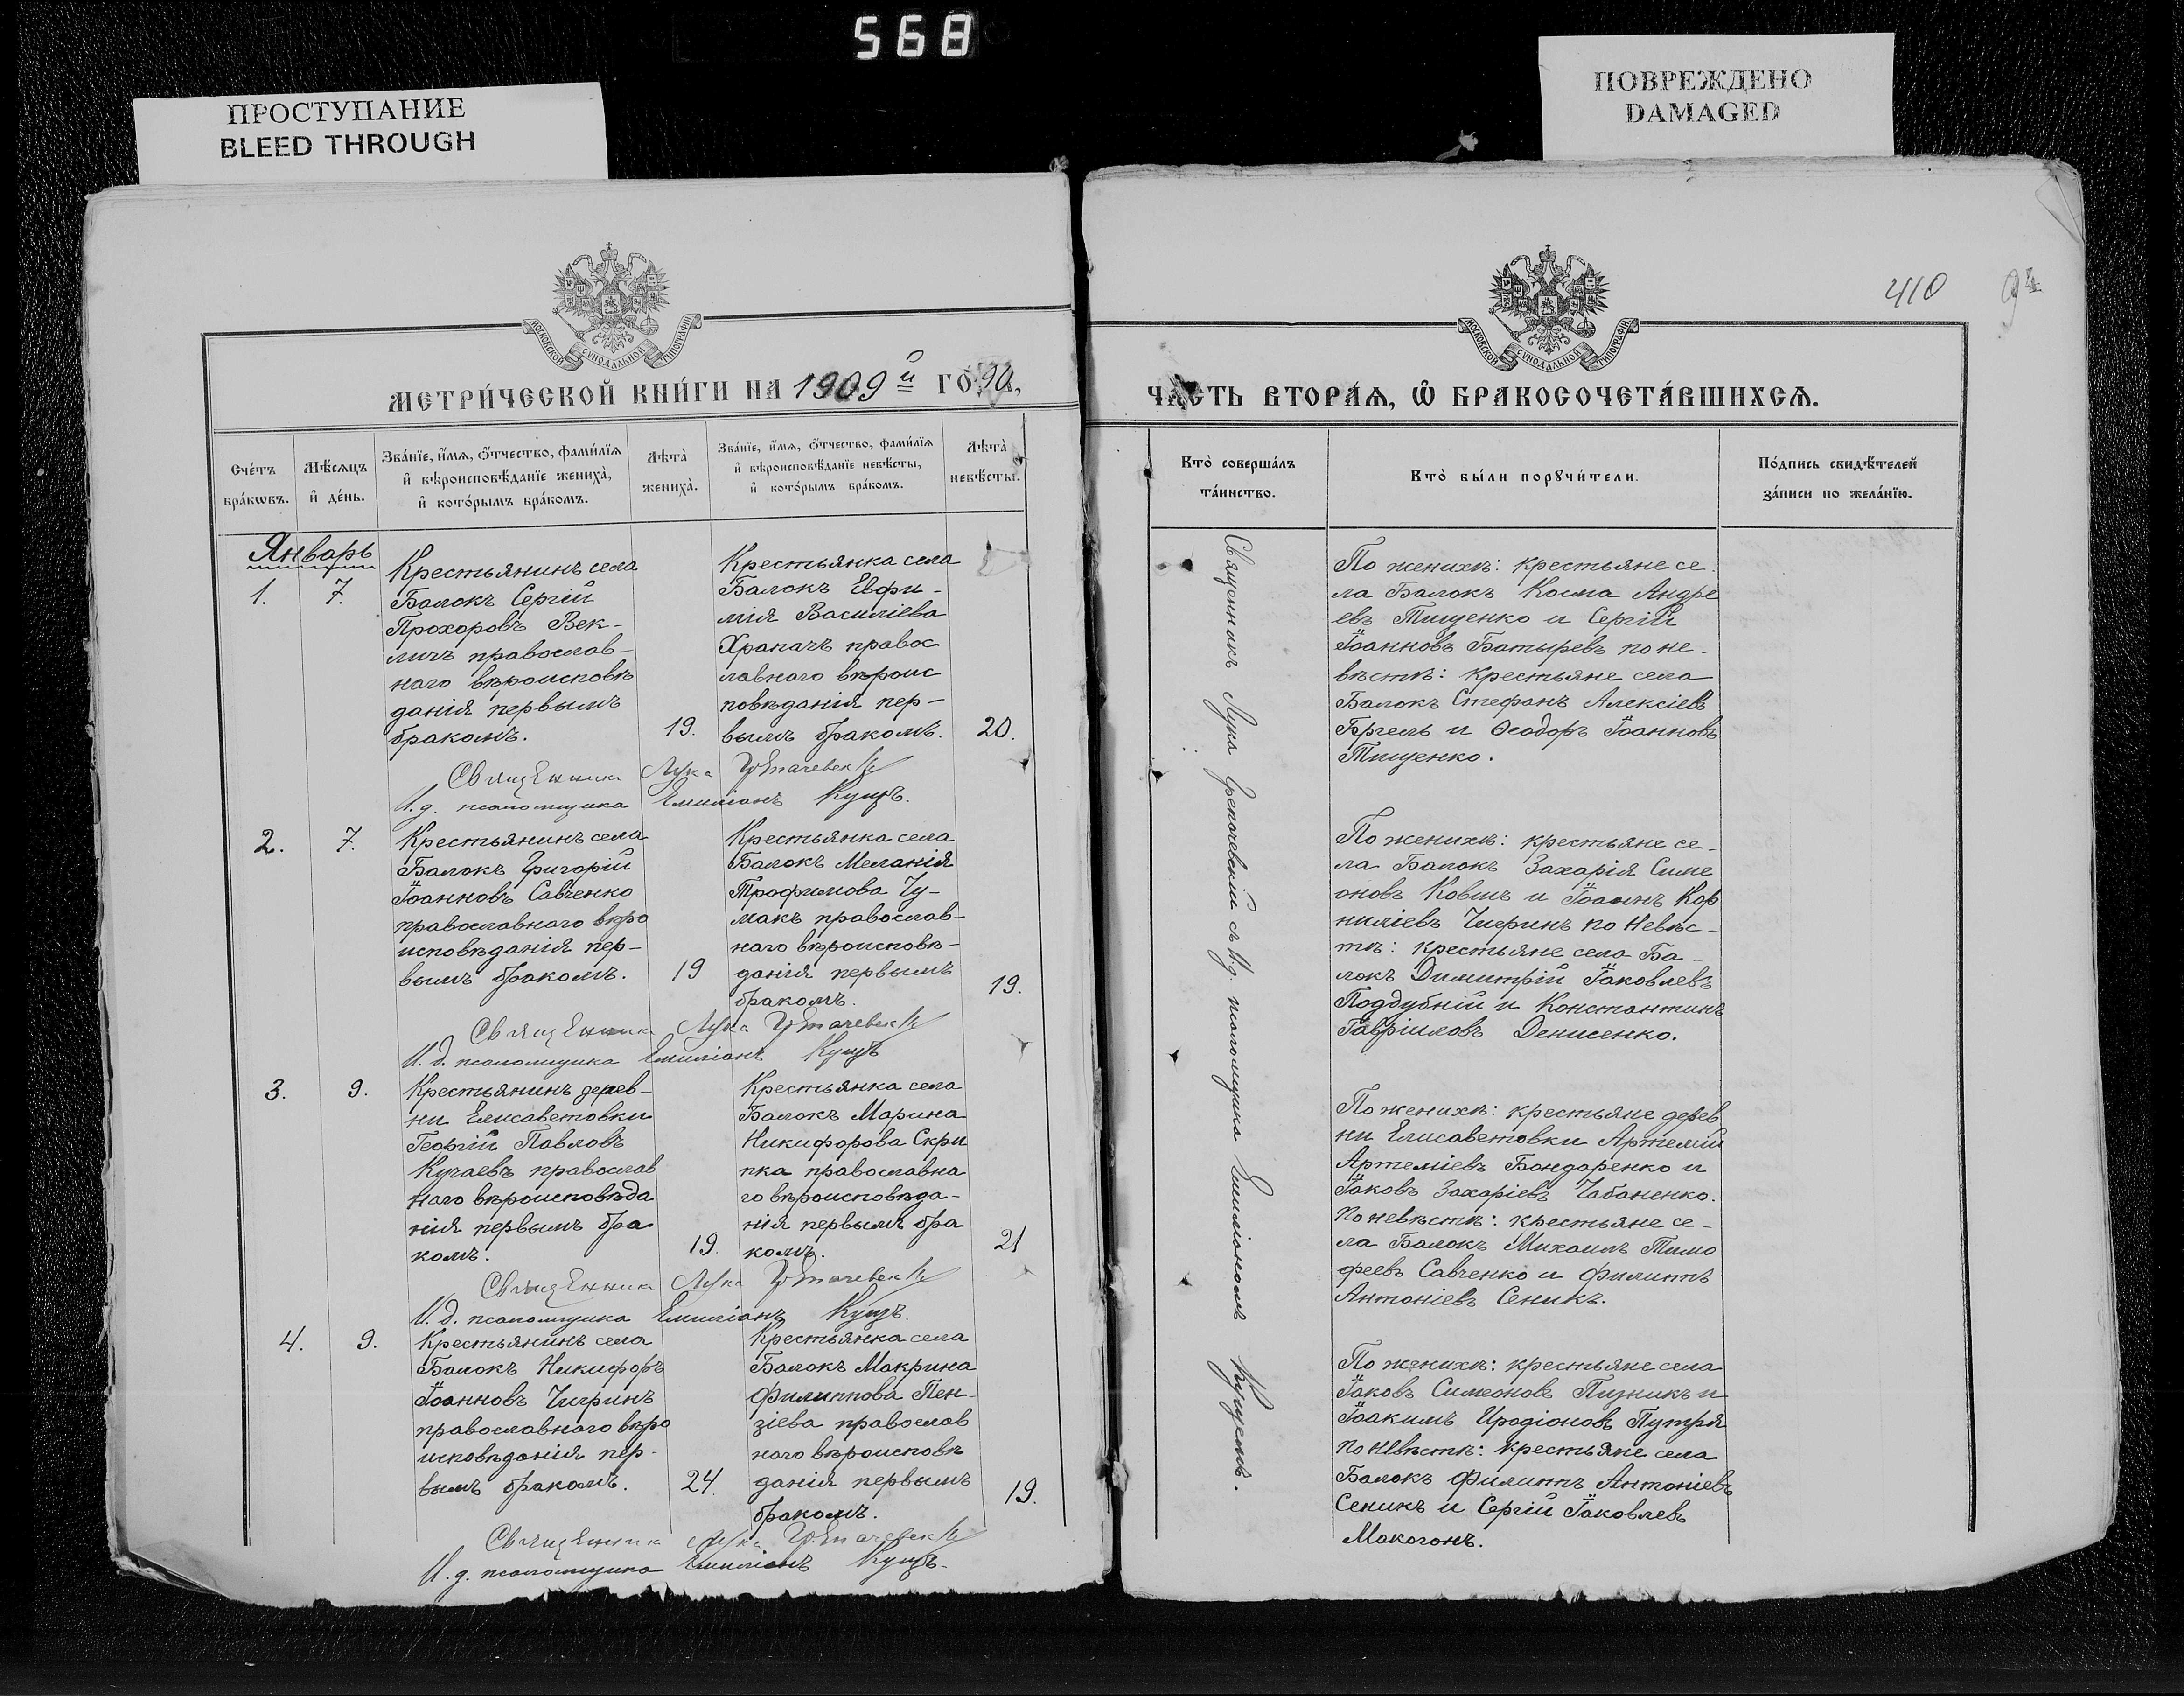 568
ПРОСТУПАНИЕ
BLEED THROUGH
ПОВРЕЖДЕНО
DAMAGED
410
94
МОСКОВСКОЙ СѴНОДАЛЬНОЙ ТИПОГРАФІИ
МЕТРИ́ЧЕСКОЙ КНИ́ГИ НА 1909й ГО́ДА,
Сче́тъ бра́кѡвъ.
Мѣ́сяцъ и҆ де́нь.
Зва́нїе, и҆́мѧ, ѻ҆́тчество, фами́лїѧ
и҆ вѣроисповѣ́данїе жениха̀,
и҆ кото́рымъ бра́комъ.
Лѣта̀
жениха̀.
Зва́нїе, и҆́мѧ, ѻ҆́тчество, фами́лїѧ
и҆ вѣроисповѣ́данїе невѣ́сты,
и҆ кото́рымъ бра́комъ.
Лѣта̀
невѣ́сты.
Январь
1. 7.
Крестьянинъ села
Балокъ Сергій
Прохоровъ Век-
личъ православ-
наго вѣроисповѣ
данія первымъ
бракомъ.
19.
Крестьянка села
Балокъ Евфи-
мія Василіева
Храпачъ правос
лавнаго вѣроис
повѣданія пер-
вымъ бракомъ.
20.
Священникъ Лука
И. д. псаломщика Емиліанъ Кущъ.
2. 7.
Крестьянинъ села
Балокъ Григорій
Іоанновъ Савченко
православнаго вѣро
исповѣданія пер-
вымъ бракомъ.
19
Крестьянка села
Балокъ Меланія
Трофимова Чу-
макъ православ-
наго вѣроисповѣ-
данія первымъ
бракомъ.
19.
Священникъ Лука
И. д. псаломщика Емиліанъ Кущъ
3. 9.
Крестьянинъ дерев-
ни Елисаветовки
Георгій Павловъ
Кучаевъ православ
наго вѣроисповѣда
нія первымъ бра
комъ.
19.
Крестьянка села
Балокъ Марина
Никифорова Скри
пка православна
го вѣроисповѣда-
нія первымъ бра
комъ.
21
Священникъ Лука
И. д. псаломщика Емиліанъ Кущъ.
4. 9.
Крестьянинъ села
Балокъ Никифоръ
Іоанновъ Чигринъ
православнаго вѣро
исповѣданія пер-
вымъ бракомъ.
24.
Крестьянка села
Балокъ Макрина
Филиппова Пен-
зіева православ
наго вѣроисповѣ
данія первымъ
бракомъ.
19.
Священникъ Лука
И. д. псаломщика Емиліанъ Кущъ.
МОСКОВСКОЙ СѴНОДАЛЬНОЙ ТИПОГРАФІИ
ЧА́СТЬ ВТОРА́Ѧ, Ѽ БРАКОСОЧЕТА́ВШИХСѦ.
Кто̀ соверша́лъ
та́инство.
Кто̀ бы́ли порꙋчи́тели.
По́дпись свидѣ́телей
за́писи по жела́нїю.
Священникъ Лука с и.д. псаломщика Емиліаномъ Кущемъ.
По женихѣ: крестьяне се-
ла Балокъ Косма Андре
евъ Тищенко и Сергій
Іоанновъ Батыревъ по не-
вѣстѣ: крестьяне села
Балокъ Стефанъ Алексіевъ
и Ѳеодоръ Іоанновъ
Тищенко.
По женихѣ: крестьяне се-
ла Балокъ Захарія Симе
оновъ Ковшъ и Іоаннъ Кор
ниліевъ Чигринъ по невѣс-
тѣ: крестьяне села Ба-
локъ Димитрій Іаковлевъ
Поддубній и Константинъ
Гавріиловъ Денисенко.
По женихѣ: крестьяне дерев
ни Елисаветовки Артемій
Артеміевъ Бондаренко и
Іаковъ Захаріевъ Чабаненко.
По невѣстѣ: крестьяне се-
ла Балокъ Михаилъ Тимо
феевъ Савченко и Филиппъ
Антоніевъ Сеникъ.
По женихѣ: крестьяне села
Іаковъ Симеоновъ Пизникъ и
Іоакимъ Иродіоновъ Путря
по невѣстѣ: крестьяне села
Балокъ Филиппъ Антоніевъ
Сеникъ и Сергій Іаковлевъ
Макогонъ.